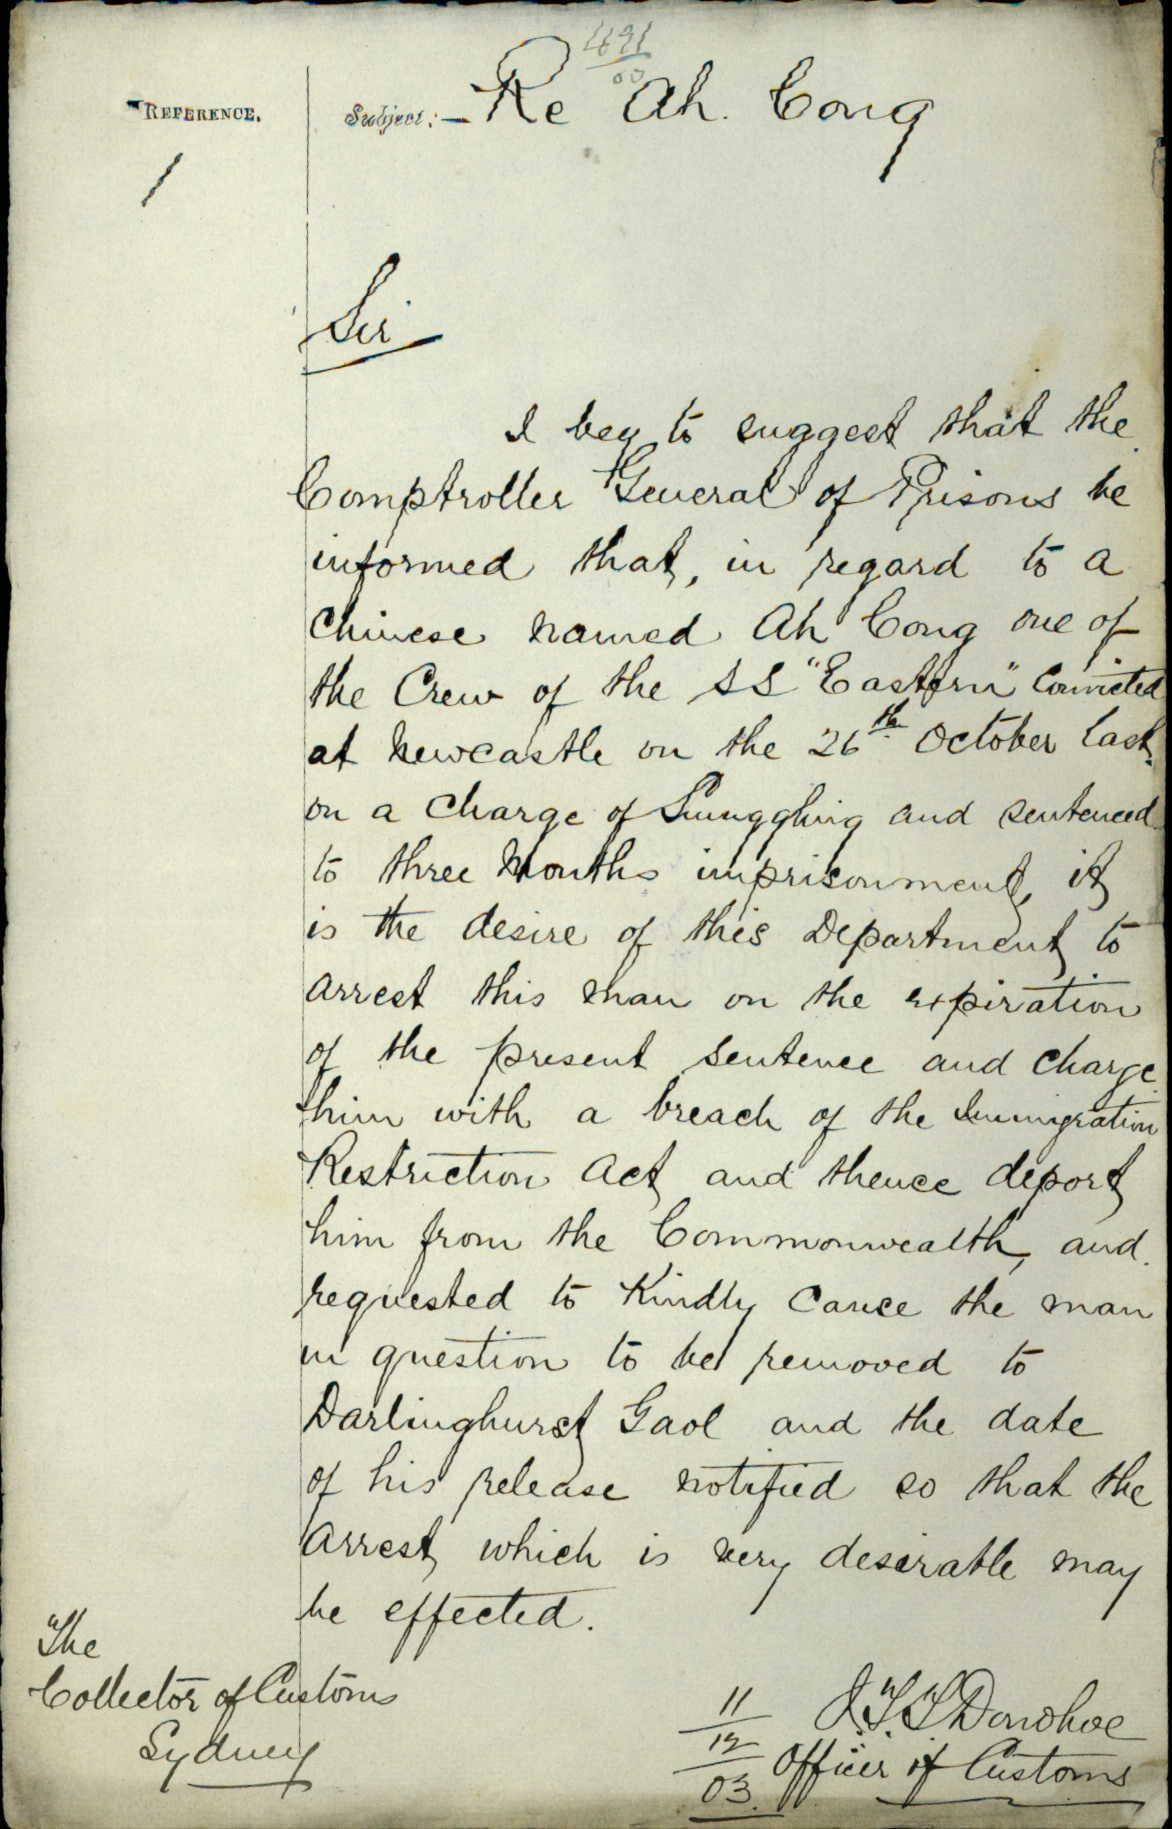 491
03
REFERENCE.
Subject:— Re Ah. Cong
1
Sir
I beg to suggest that the
Comptroller General of Prisons be
informed that, in regard to a
Chinese named Ah Cong one of
the Crew of the SS "Eastern" Convicted
at Newcastle on the 26th October last
on a Charge of Smuggling and sentenced
to three Months imprisonment, it
is the desire of this Department to
arrest this man on the expiration
of the present sentence and charge
him with a breach of the Immigration
Restriction Act and thence deport
him from the Commonwealth, and
requested to Kindly Cause the man
in question to be removed to
Darlinghurst Gaol and the date
of his release notified so that the
arrest, which is very desirable may
be effected.
The
Collector of Customs
Sydney
11
12
03.
J.T.T. Donohoe
Officer of Customs